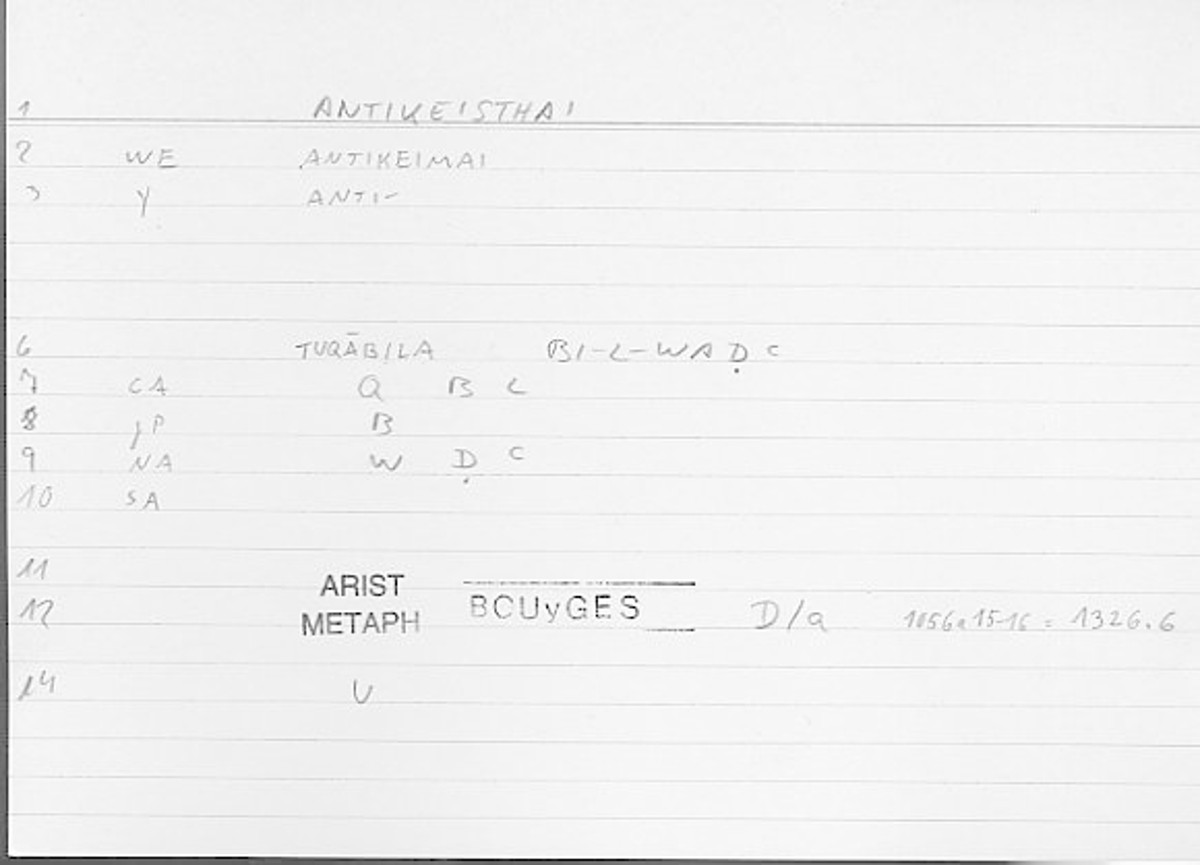 1 ANTIKEISTHAI
2 WE ANTIKEIMAI
3 Y ANTI-
6 TUQĀBILA BI-L-WAḌ ᶜ
7 CA Q B L
8 JP B
9 NA W Ḍ ᶜ
10 SA
11
12 ARIST METAPH BCUyGES D/a 1056a15-16 = 1326.6
14 U